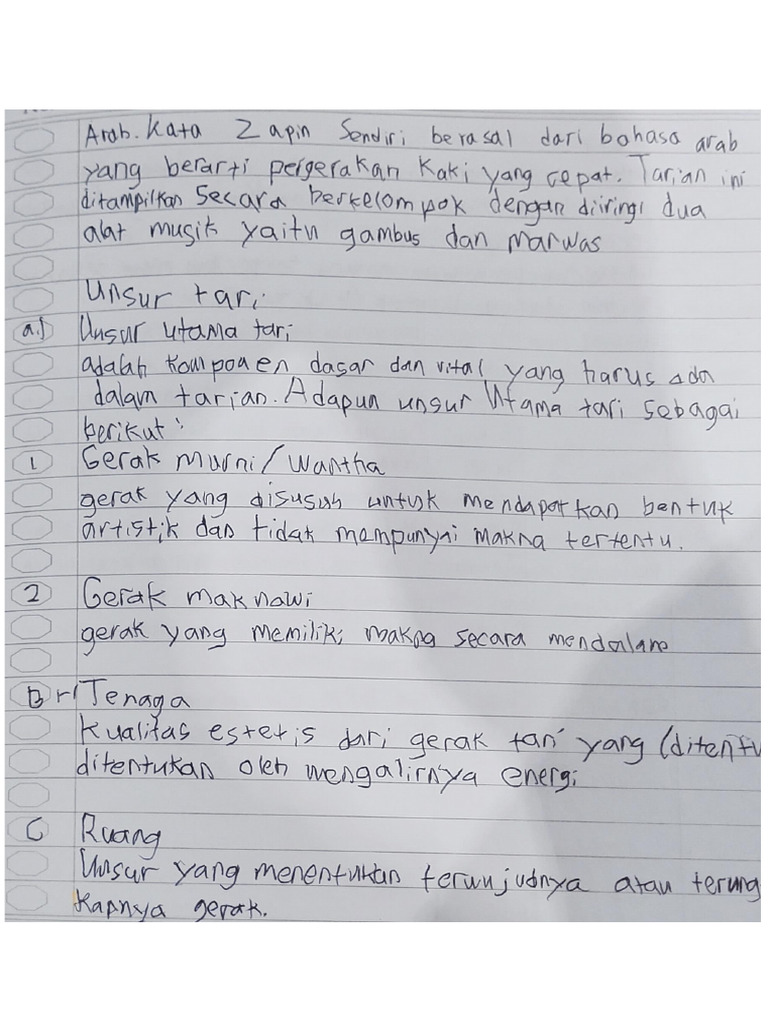 Arab. Kata Zapin Sendiri berasal dari bahasa arab
yang berarti pergerakan kaki yang cepat. Tarian ini
ditampilkan Secara berkelompok dengan diiringi dua
alat musik yaitu gambus dan marwas
Unsur tari
a.) Unsur utama tari
adalah komponen dasar dan vital yang harus ada
dalam tarian. Adapun unsur Utama tari sebagai
berikut :
1 Gerak murni / Wantha
gerak yang disusun untuk mendapatkan bentuk
artistik dan tidak mempunyai makna tertentu.
2 Gerak maknawi
gerak yang memiliki makna secara mendalam
B r/ Tenaga
Kualitas estetis dari gerak tari yang (ditentu
ditentukan oleh mengalirnya energi
C Ruang
Unsur yang menentukan terwujudnya atau terung
kapnya gerak.